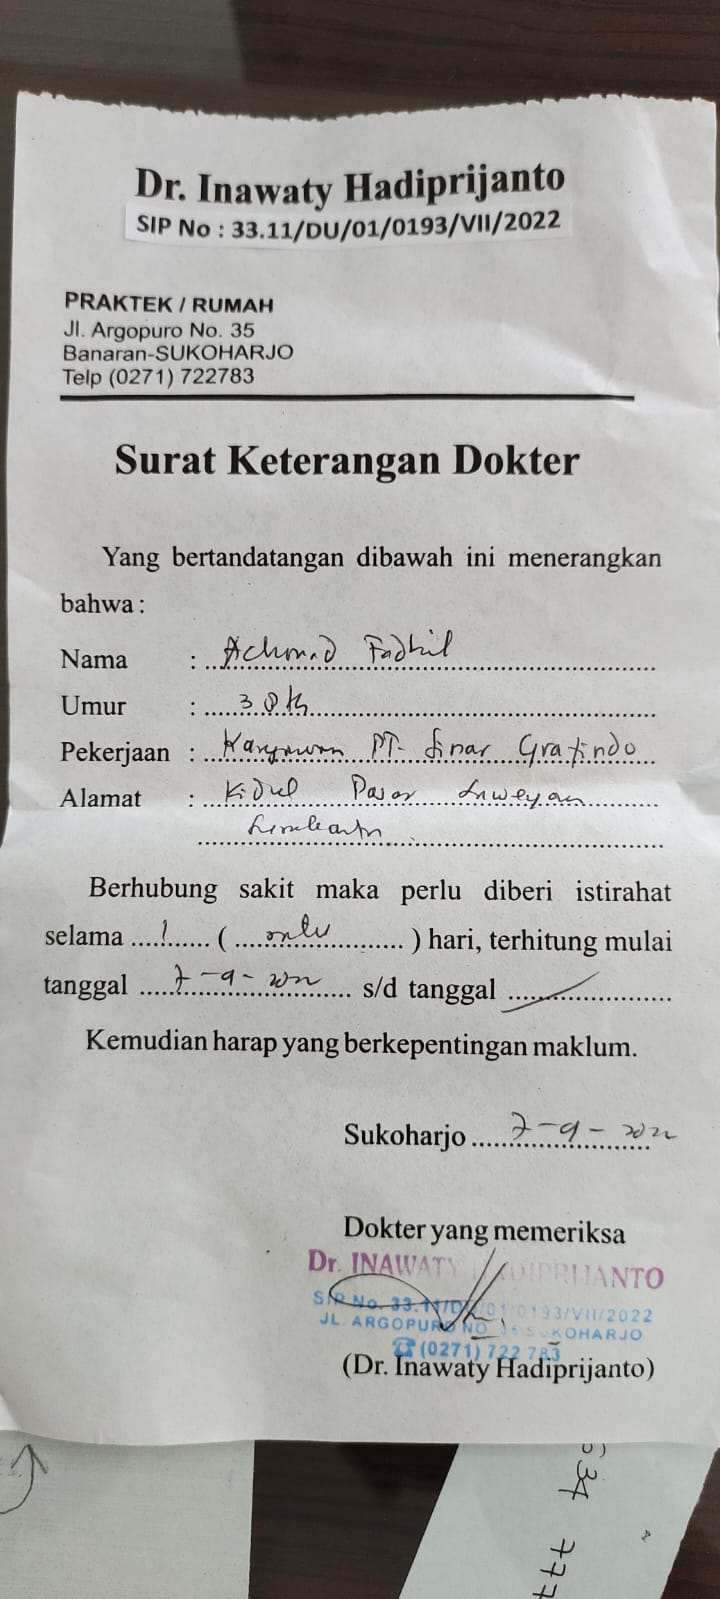 Dr. Inawaty Hadiprijanto
SIP No : 33.11/DU/01/0193/VII/2022
PRAKTEK / RUMAH
Jl. Argopuro No. 35
Banaran-SUKOHARJO
Telp (0271) 722783
Surat Keterangan Dokter
Yang bertandatangan dibawah ini menerangkan
bahwa :
Nama : Achmad Fadhil
Umur : 30 th
Pekerjaan : Karyawan PT. Sinar Grafindo
Alamat : Kidul Pasar Laweyan
Berhubung sakit maka perlu diberi istirahat
selama 1 ( ) hari, terhitung mulai
tanggal 7-9-2022 s/d tanggal
Kemudian harap yang berkepentingan maklum.
Sukoharjo 7-9-2022
Dokter yang memeriksa
Dr. INAWATY HADIPRIJANTO
SIP No. 33.11/DU/01/0193/VII/2022
JL. ARGOPURO NO. 35 SUKOHARJO
☎ (0271) 722 783
(Dr. Inawaty Hadiprijanto)
634 777